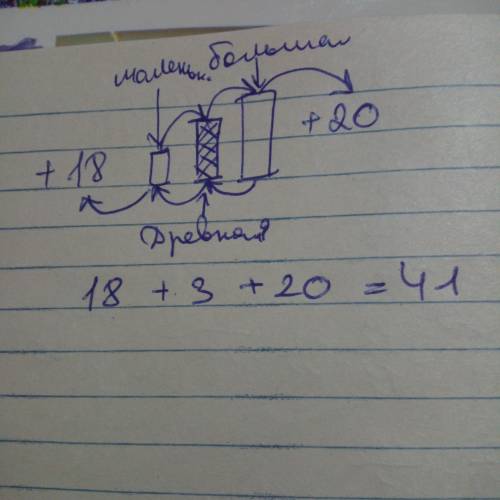 маленьк. большая
+18 +20
Древная
18 + 3 + 20 = 41